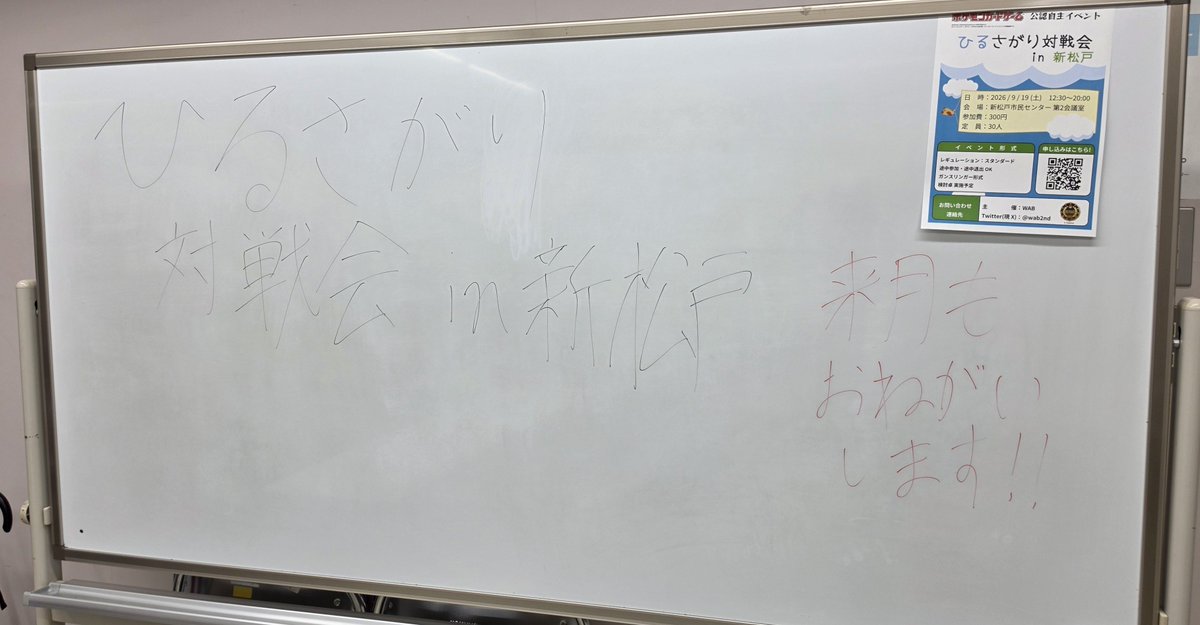 ひるさがり
対戦会 in 新松戸
来月も
おねがい
します!!
ポケモンカードゲーム 公認自主イベント
ひるさがり対戦会
in 新松戸
日 時：2026 / 9 / 19 (土) 12:30～20:00
会 場：新松戸市民センター 第2会議室
参加費：300円
定 員：30人
イベント形式
レギュレーション：スタンダード
途中参加・途中退出 OK
ガンスリンガー形式
検討卓 実施予定
申し込みはこちら!
お問い合わせ
連絡先
主 催：WAB
Twitter(現 X)：@wab2nd